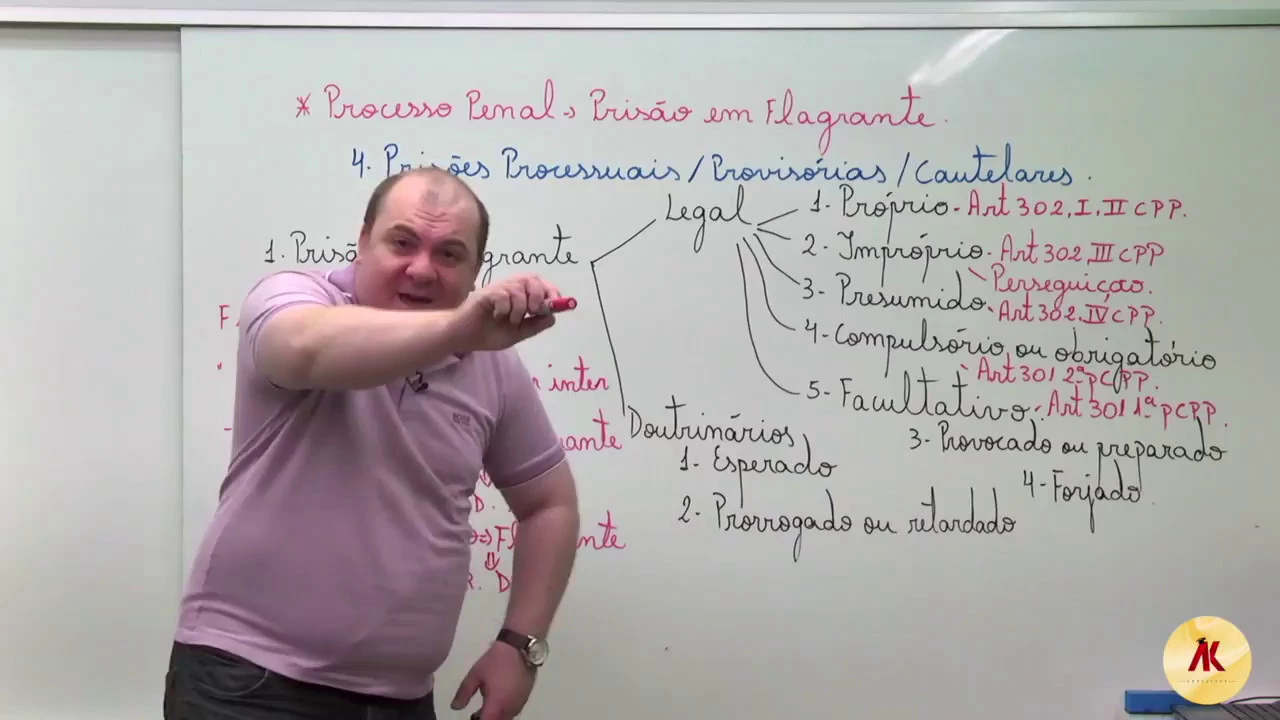 * Processo Penal → Prisão em Flagrante.
4. Prisões Processuais / Provisórias / Cautelares.
Legal
1. Prisã grante
1- Próprio - Art 302, I, II CPP.
2- Impróprio - Art 302, III CPP
Perseguição.
3- Presumido. Art 302, IV CPP.
4- Compulsório ou obrigatório
Art 301 2ª p CPP.
5- Facultativo. Art 301 1ª p CPP.
F
inter
ante
D.
Doutrinários
1- Esperado
2- Prorrogado ou retardado
3- Provocado ou preparado
4- Forjado.
⇒ Fl nte
R. D
AK